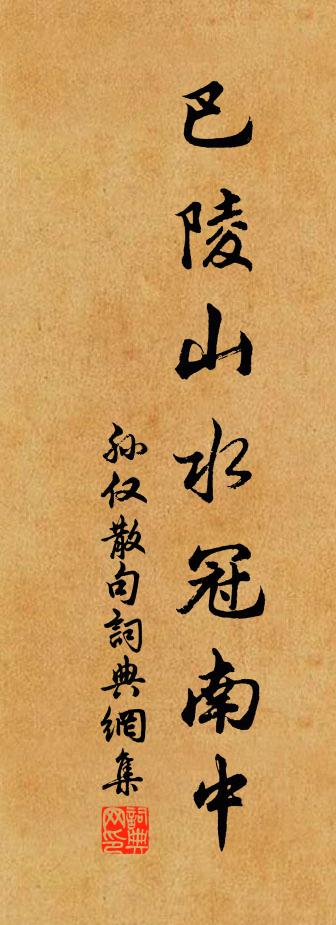 巴陵山水冠南中
孙仅散句詞典網集
詞典网印